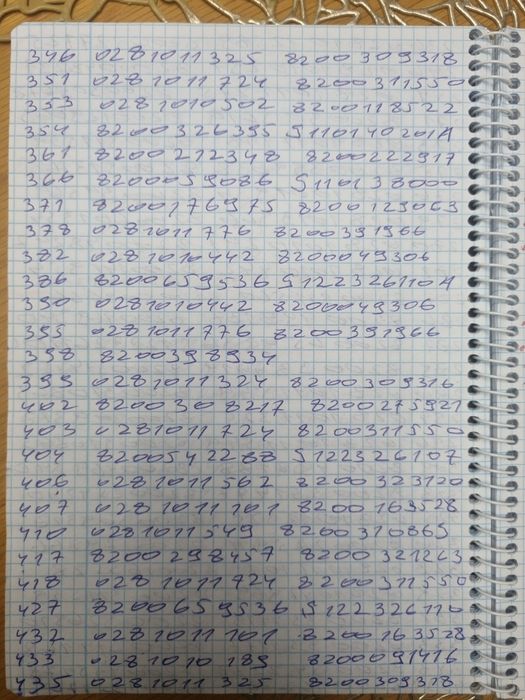 346 0281011325 8200309318
351 0281011724 8200311550
353 0281010502 8200118522
354 8200326395 S110140201A
361 8200212348 8200222917
366 8200059086 S110138000
371 8200176975 8200129063
378 0281011776 8200391966
382 0281010442 8200049306
386 8200659536 S122326110A
390 0281010442 8200049306
395 0281011776 8200391966
398 8200398934
399 0281011324 8200309316
402 8200308217 8200275921
403 0281011724 8200311550
404 8200542288 S122326107
406 0281011562 8200323120
407 0281011101 8200163528
410 0281011549 8200310863
417 8200298457 8200321263
418 0281011724 8200311550
427 8200659536 S122326110
432 0281011101 8200163528
433 0281010189 8200091416
435 0281011325 8200309318